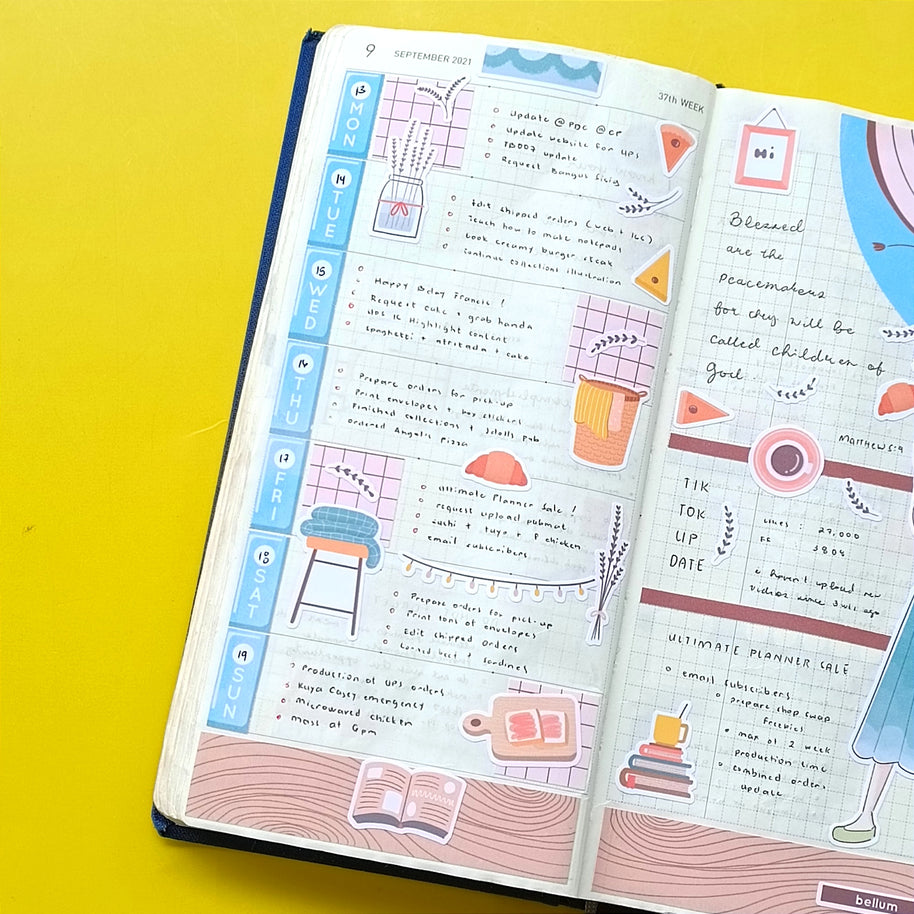 9 SEPTEMBER 2021
37th WEEK
13 MON
Update @ PDC @ CP
Update website for UPS
PB007 update
Request Bangus Sisig
14 TUE
Edit shipped orders (web + IG)
Teach how to make notepads
Cook creamy burger steak
continue collections illustration
15 WED
Happy Bday Francis!
Request cake + grab handa
UPS IG Highlight content
spaghetti + afritada + cake
16 THU
Prepare orders for pick-up
Print envelopes + buy stickers
Finished collections + Jdolls pub
ordered Angel's Pizza
17 FRI
Ultimate Planner Sale!
request upload pubmat
sushi + tuyo + P chicken
email subscribers
18 SAT
Prepare orders for pick-up
Print tons of envelopes
Edit shipped orders
corned beef + sardines
19 SUN
Production of UPS orders
Kuya Casey emergency
Microwaved chicken
Mass at 6pm
Hi
Blessed
are the
peacemakers
for they will be
called children of
God.
Matthew 5:9
TIK
TOK
UP
DATE
Likes: 27,000
FF 3808
i haven't upload new
videos since 3 wks ago
ULTIMATE PLANNER SALE
email subscribers
prepare shop swap
freebies
max of 2 week
production time
combined orders
update
bellum